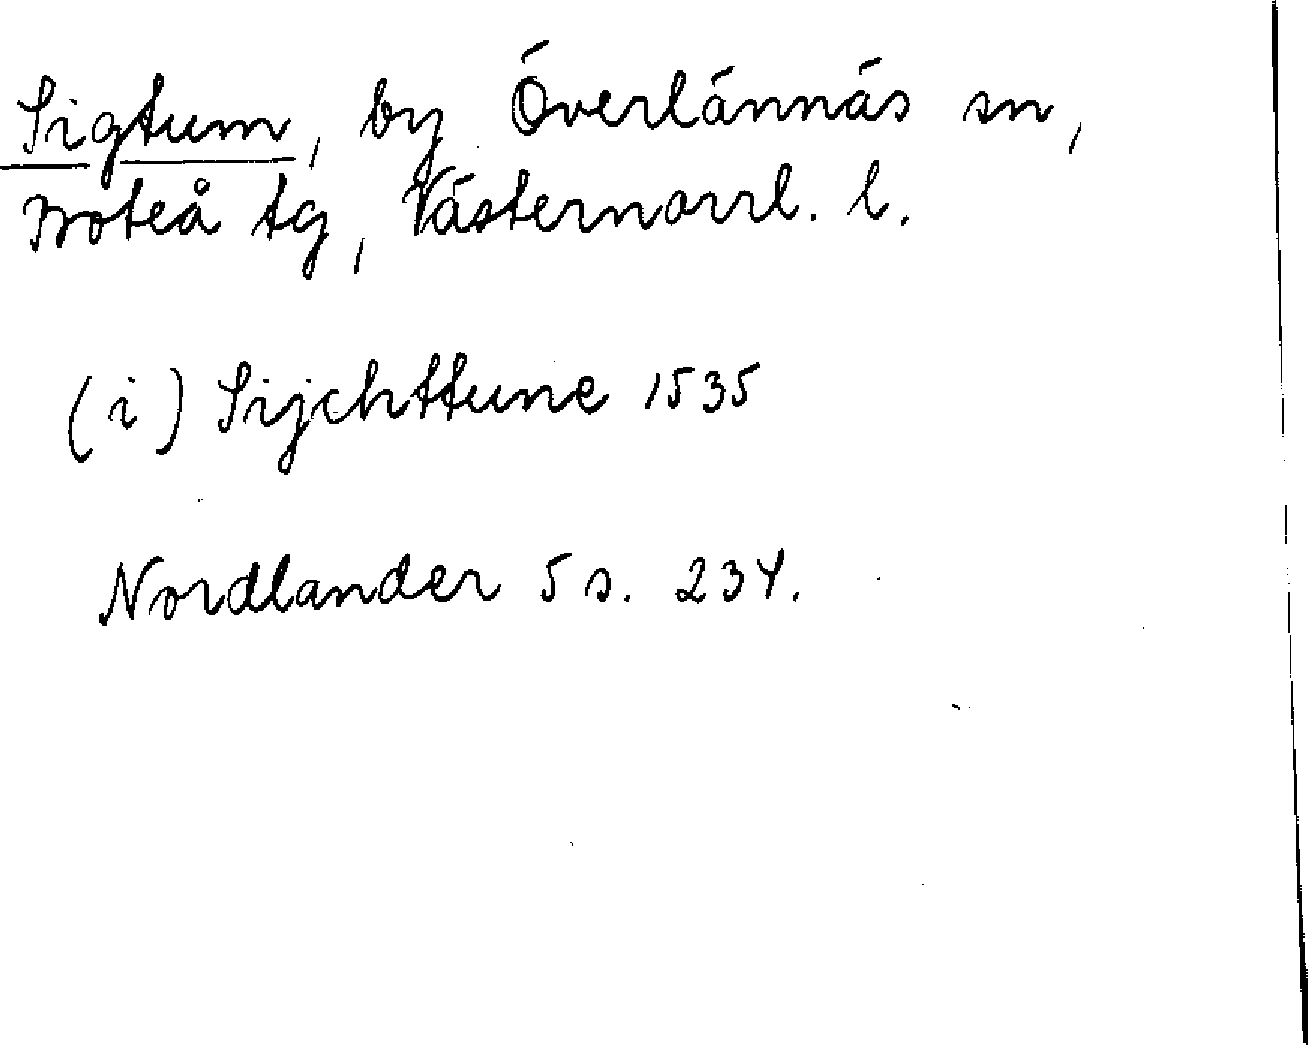 Sigtum, by Överlännäs sn,
Boteå tg, Västernorrl. l.
(i) Sijchttune 1535
Nordlander 5 s. 234.